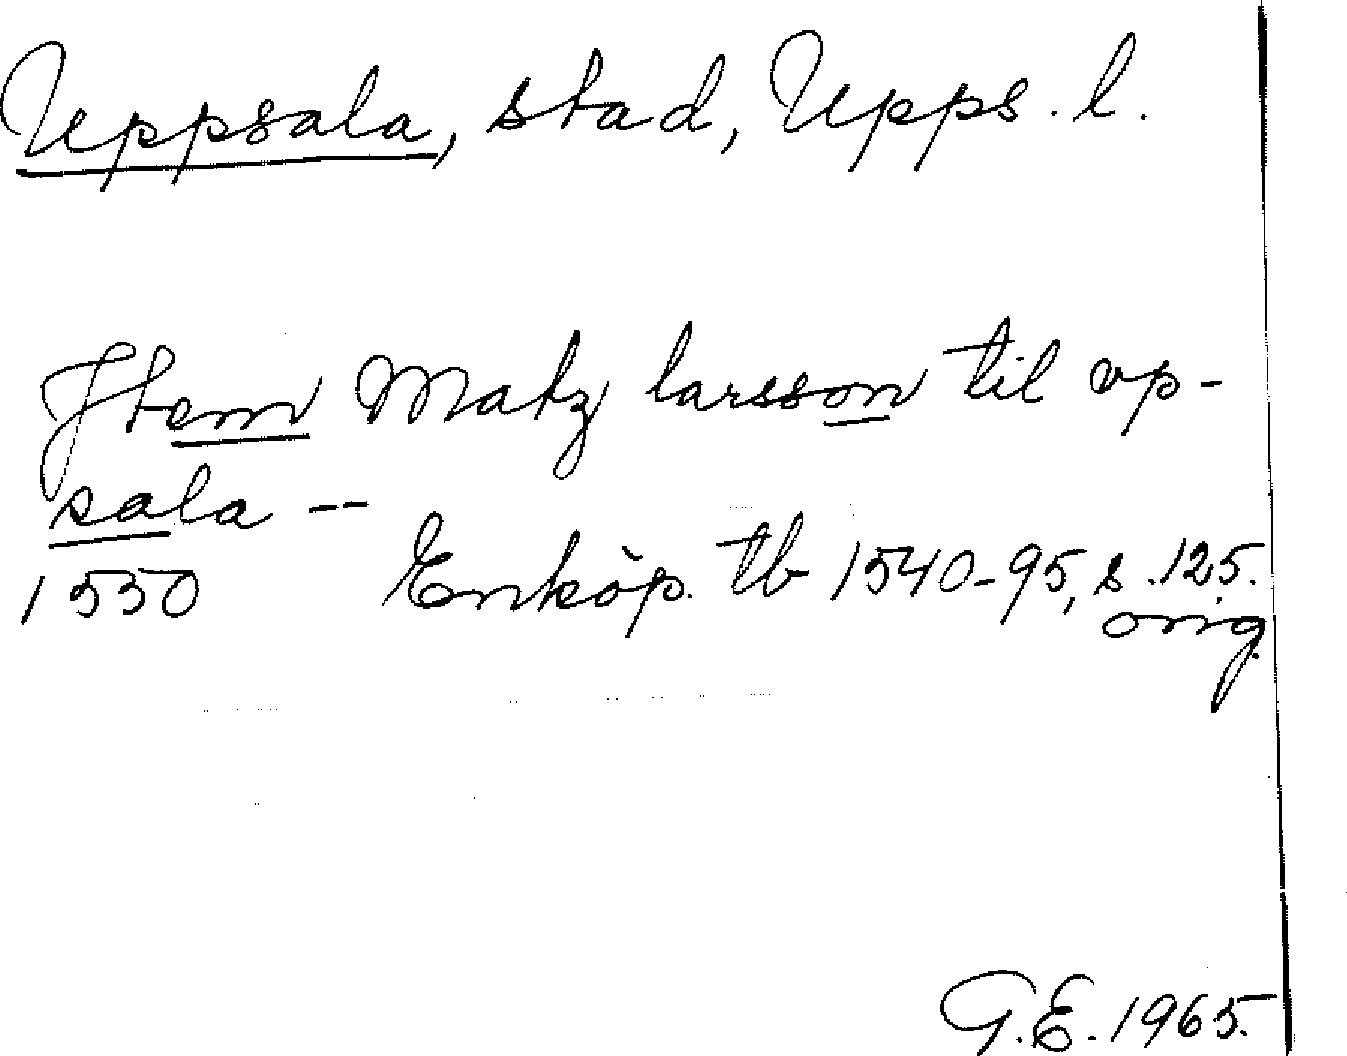 Uppsala, stad, Upps. l.
Jtem Matz larsson til vp-
sala --
1550 Enköp. tb 1540-95, s. 125.
orig.
G.E. 1965.